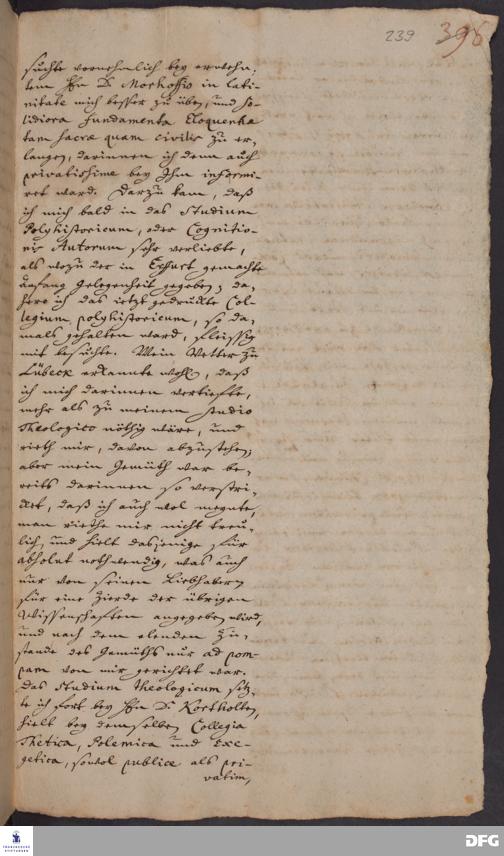 239
396
suchte vornehmlich bey erwehn,
tem Hn D. Morhoffio in lati-
nitate mich besser zu üben, und so-
lidiora fundamenta Eloquentiæ
tam sacræ quam civilis zu er-
langen, darinnen ich denn auch
privatissime bey Ihm informi-
ret ward. Darzu kam, daß
ich mich bald in das Studium
Polyhistoricum, oder Cognitio-
nis Autorum sehr verliebte,
als wozu der in Erffurt gemachte
Anfang Gelegenheit gegeben; da-
hero ich das ietzt gedruckte Col-
legium polyhistoricum, so da-
mals gehalten ward, fleissig
mit besuchte. Mein Vetter zu
Lübeck erkannte wohl, daß
ich mich darinnen vertieffte,
mehr als zu meinem studio
Theologico nöthig wäre, und
rieth mir, davon abzustehen;
aber mein Gemüth war be-
reits darinnen so verstri-
cket, daß ich auch wol meynte,
man riethe mir nicht treu-
lich, und hielt dasjenige für
absolut nothwendig, was auch
nur von seinen Liebhabern
für eine Zierde der übrigen
Wissenschafften angegeben wird,
und nach dem elenden Zu-
stande des Gemüths nur ad pom-
pam von mir gerichtet war.
Das Studium Theologicum setz-
te ich fort bey Hn D. Kortholten,
hielt bey demselben Collegia
Thetica, Polemica und Exe-
getica, sowol publice als pri-
vatim,
FRANCKESCHE
STIFTUNGEN
DFG